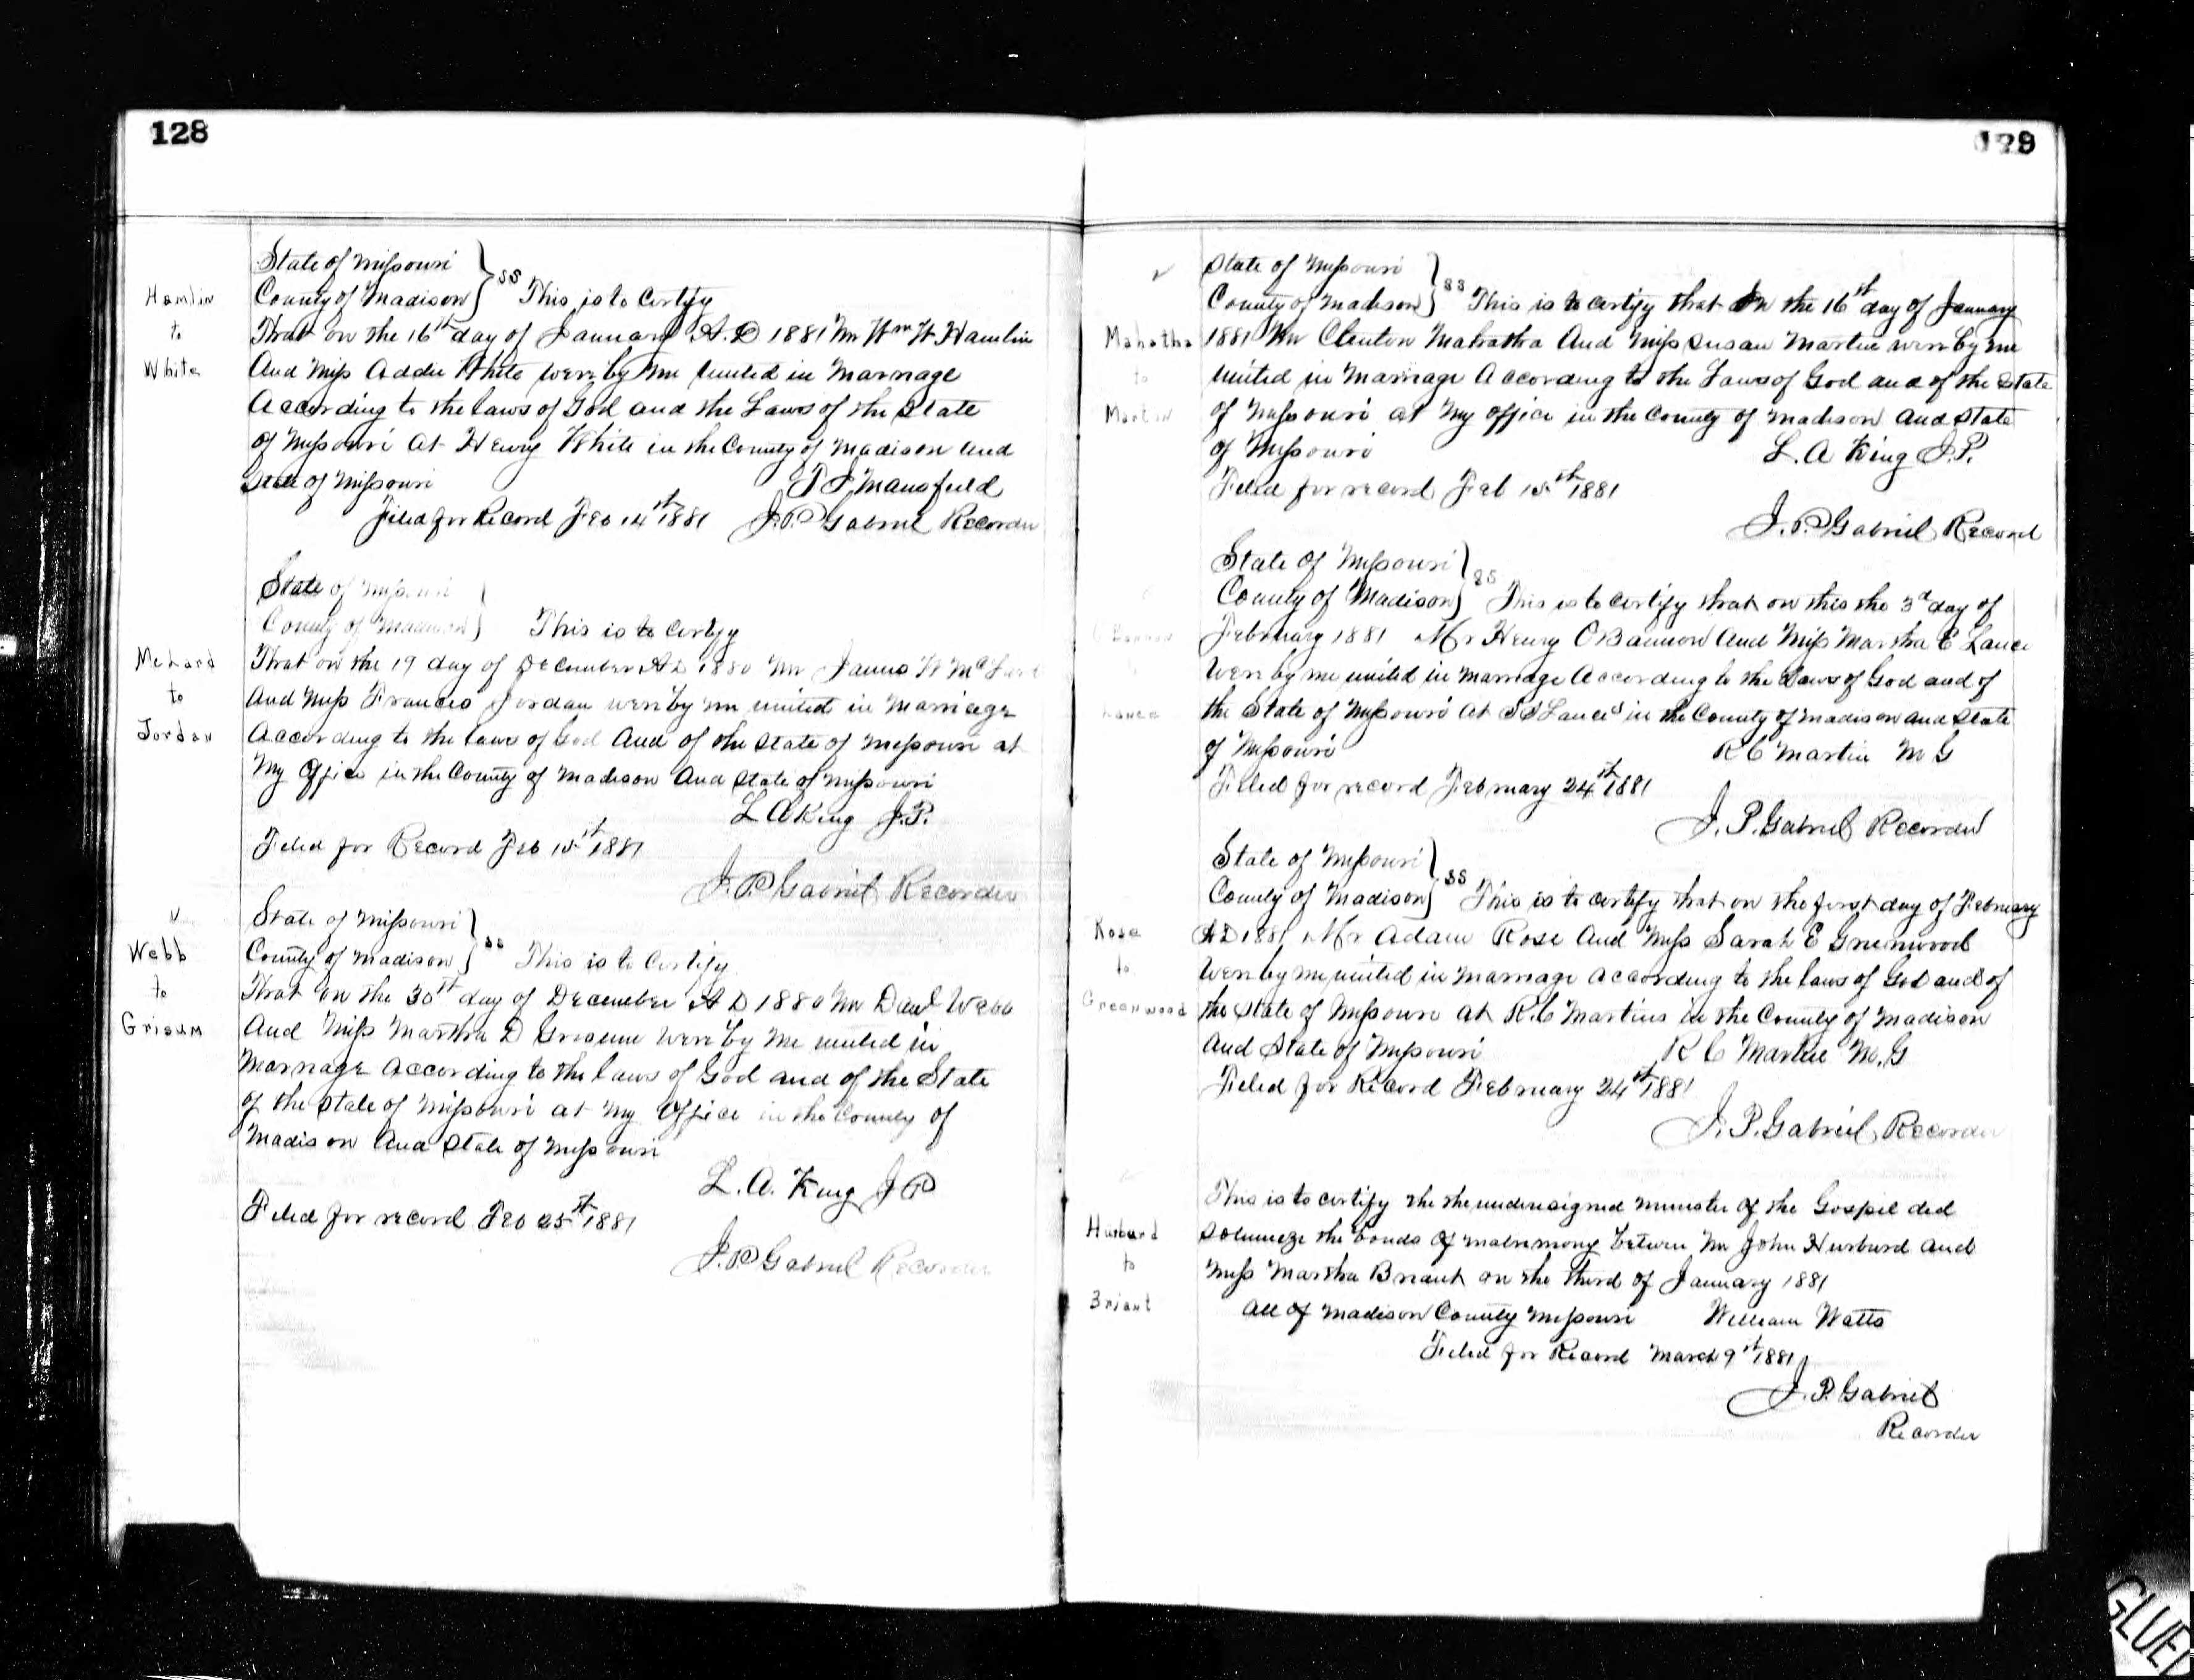 128
Hamlin
to
White
State of Missouri
County of Madison } SS This is to Certify
That on the 16th day of January A.D 1881 Mr Wm H. Hamlin
And Miss Addie White were by me united in Marriage
According to the laws of God and the Laws of the State
of Missouri at Henry White in the County of Madison and
State of Missouri
Mansfield
Filed for Record Feb 14th 1881 J.P. Gabriel Recorder
McLard
to
Jordan
State of Missouri
County of Madison } This is to Certify
That on the 19 day of December AD 1880 Mr James H McLard
And Miss Frances Jordan were by me united in Marriage
According to the laws of God And of the State of Missouri at
My Office in the County of Madison And State of Missouri
L A King J.P.
Filed for Record Feb 15th 1881
J.P. Gabriel Recorder
Webb
to
Grisum
State of Missouri
County of Madison } SS This is to Certify
That on the 30th day of December A D 1880 Mr Danl Webb
And Miss Martha D Grisum were by me united in
Marriage According to the laws of God and of the State
of the State of Missouri at My Office in the County of
Madison And State of Missouri
L. A. King J P
Filed for record Feb 25th 1881
J.P. Gabriel Recorder
129
Mahatha
to
Martin
State of Missouri
County of Madison } SS This is to certify that on the 16th day of January
1881 Mr Clinton Mahatha And Miss Susan Martin were by me
united in Marriage According to the Laws of God and of the State
of Missouri at My office in the County of Madison And State
of Missouri L. A King J.P.
Filed for record Feb 15th 1881
J. P. Gabriel Record
OBannon
Lance
State of Missouri
County of Madison } SS This is to Certify that on this the 3d day of
February 1881 Mr Henry OBannon And Miss Martha E Lance
Were by me united in Marriage According to the Laws of God and of
the State of Missouri at S S Lance's in the County of Madison and State
of Missouri R C Martin M G
Filed for record February 24th 1881
J. P. Gabriel Recorder
Rose
to
Greenwood
State of Missouri
County of Madison } SS This is to certify that on the first day of February
AD 1881 Mr Adam Rose And Miss Sarah E Greenwood
Were by me united in Marriage According to the laws of God and of
the State of Missouri at R. C Martins in the County of Madison
And State of Missouri R C Martin M. G
Filed for Record February 24th 1881
J. P. Gabriel Recorder
Hurburd
to
Briant
This is to certify the the undersigned Minister of the Gospel did
Solumnize the bonds of matrimony between Mr John Hurburd and
Miss Martha Briant on the third of January 1881
All of Madison County Missouri William Watts
Filed for Record March 9th 1881
J. P. Gabriel
Recorder
GLUED